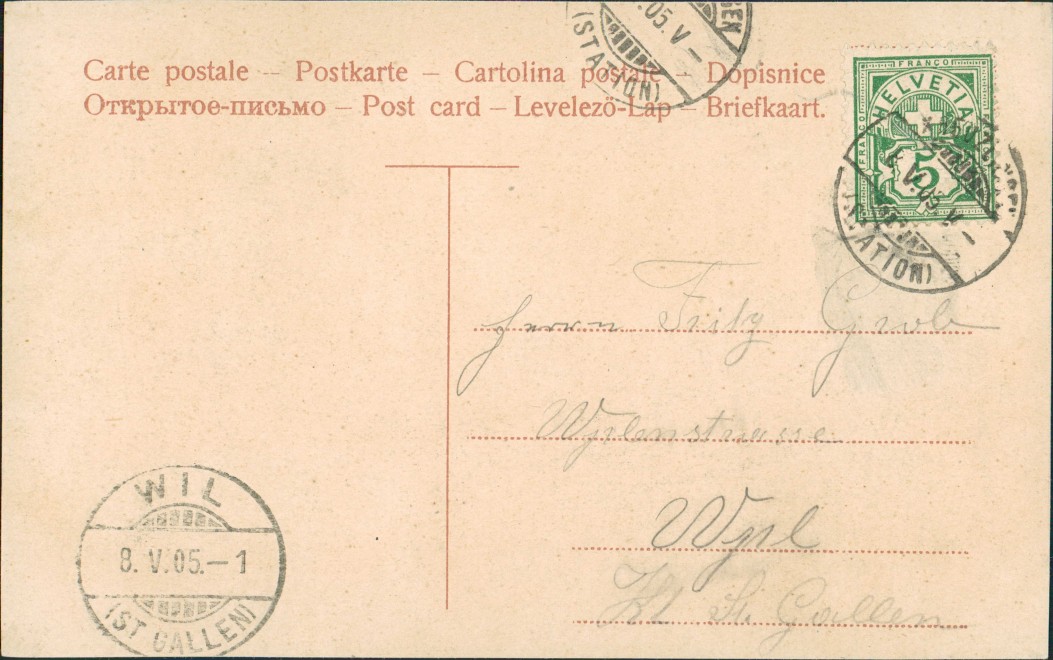 .05.V–
(STATION)
Carte postale – Postkarte – Cartolina postale – Dopisnice
Открытое-письмо – Post card – Levelező-Lap – Briefkaart.
FRANCO
FRANCO
HELVETIA
5
V.05.V–1
(STATION)
Herrn Fritz Grob
Wylenstrasse
Wyl
Kt. St. Gallen
WIL
8. V. 05.–1
(ST GALLEN)